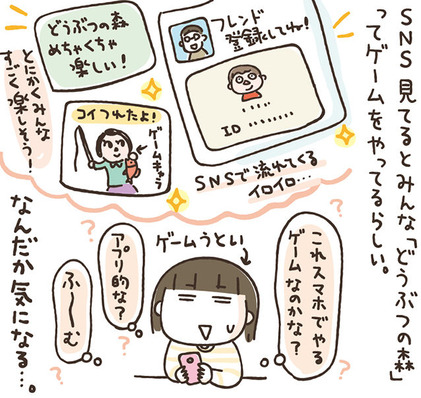 SNS見てるとみんな「どうぶつの森」
ってゲームをやってるらしい。
フレンド
登録してね!
ID
どうぶつの森
めちゃくちゃ
楽しい!
コイつれたよ!
ゲームキャラ
SNSで流れてくる
イロイロ…
とにかくみんな
すごく楽しそう!
ゲームうとい
これスマホでやる
ゲームなのかな?
アプリ的な?
ふ〜む
なんだか気になる…。